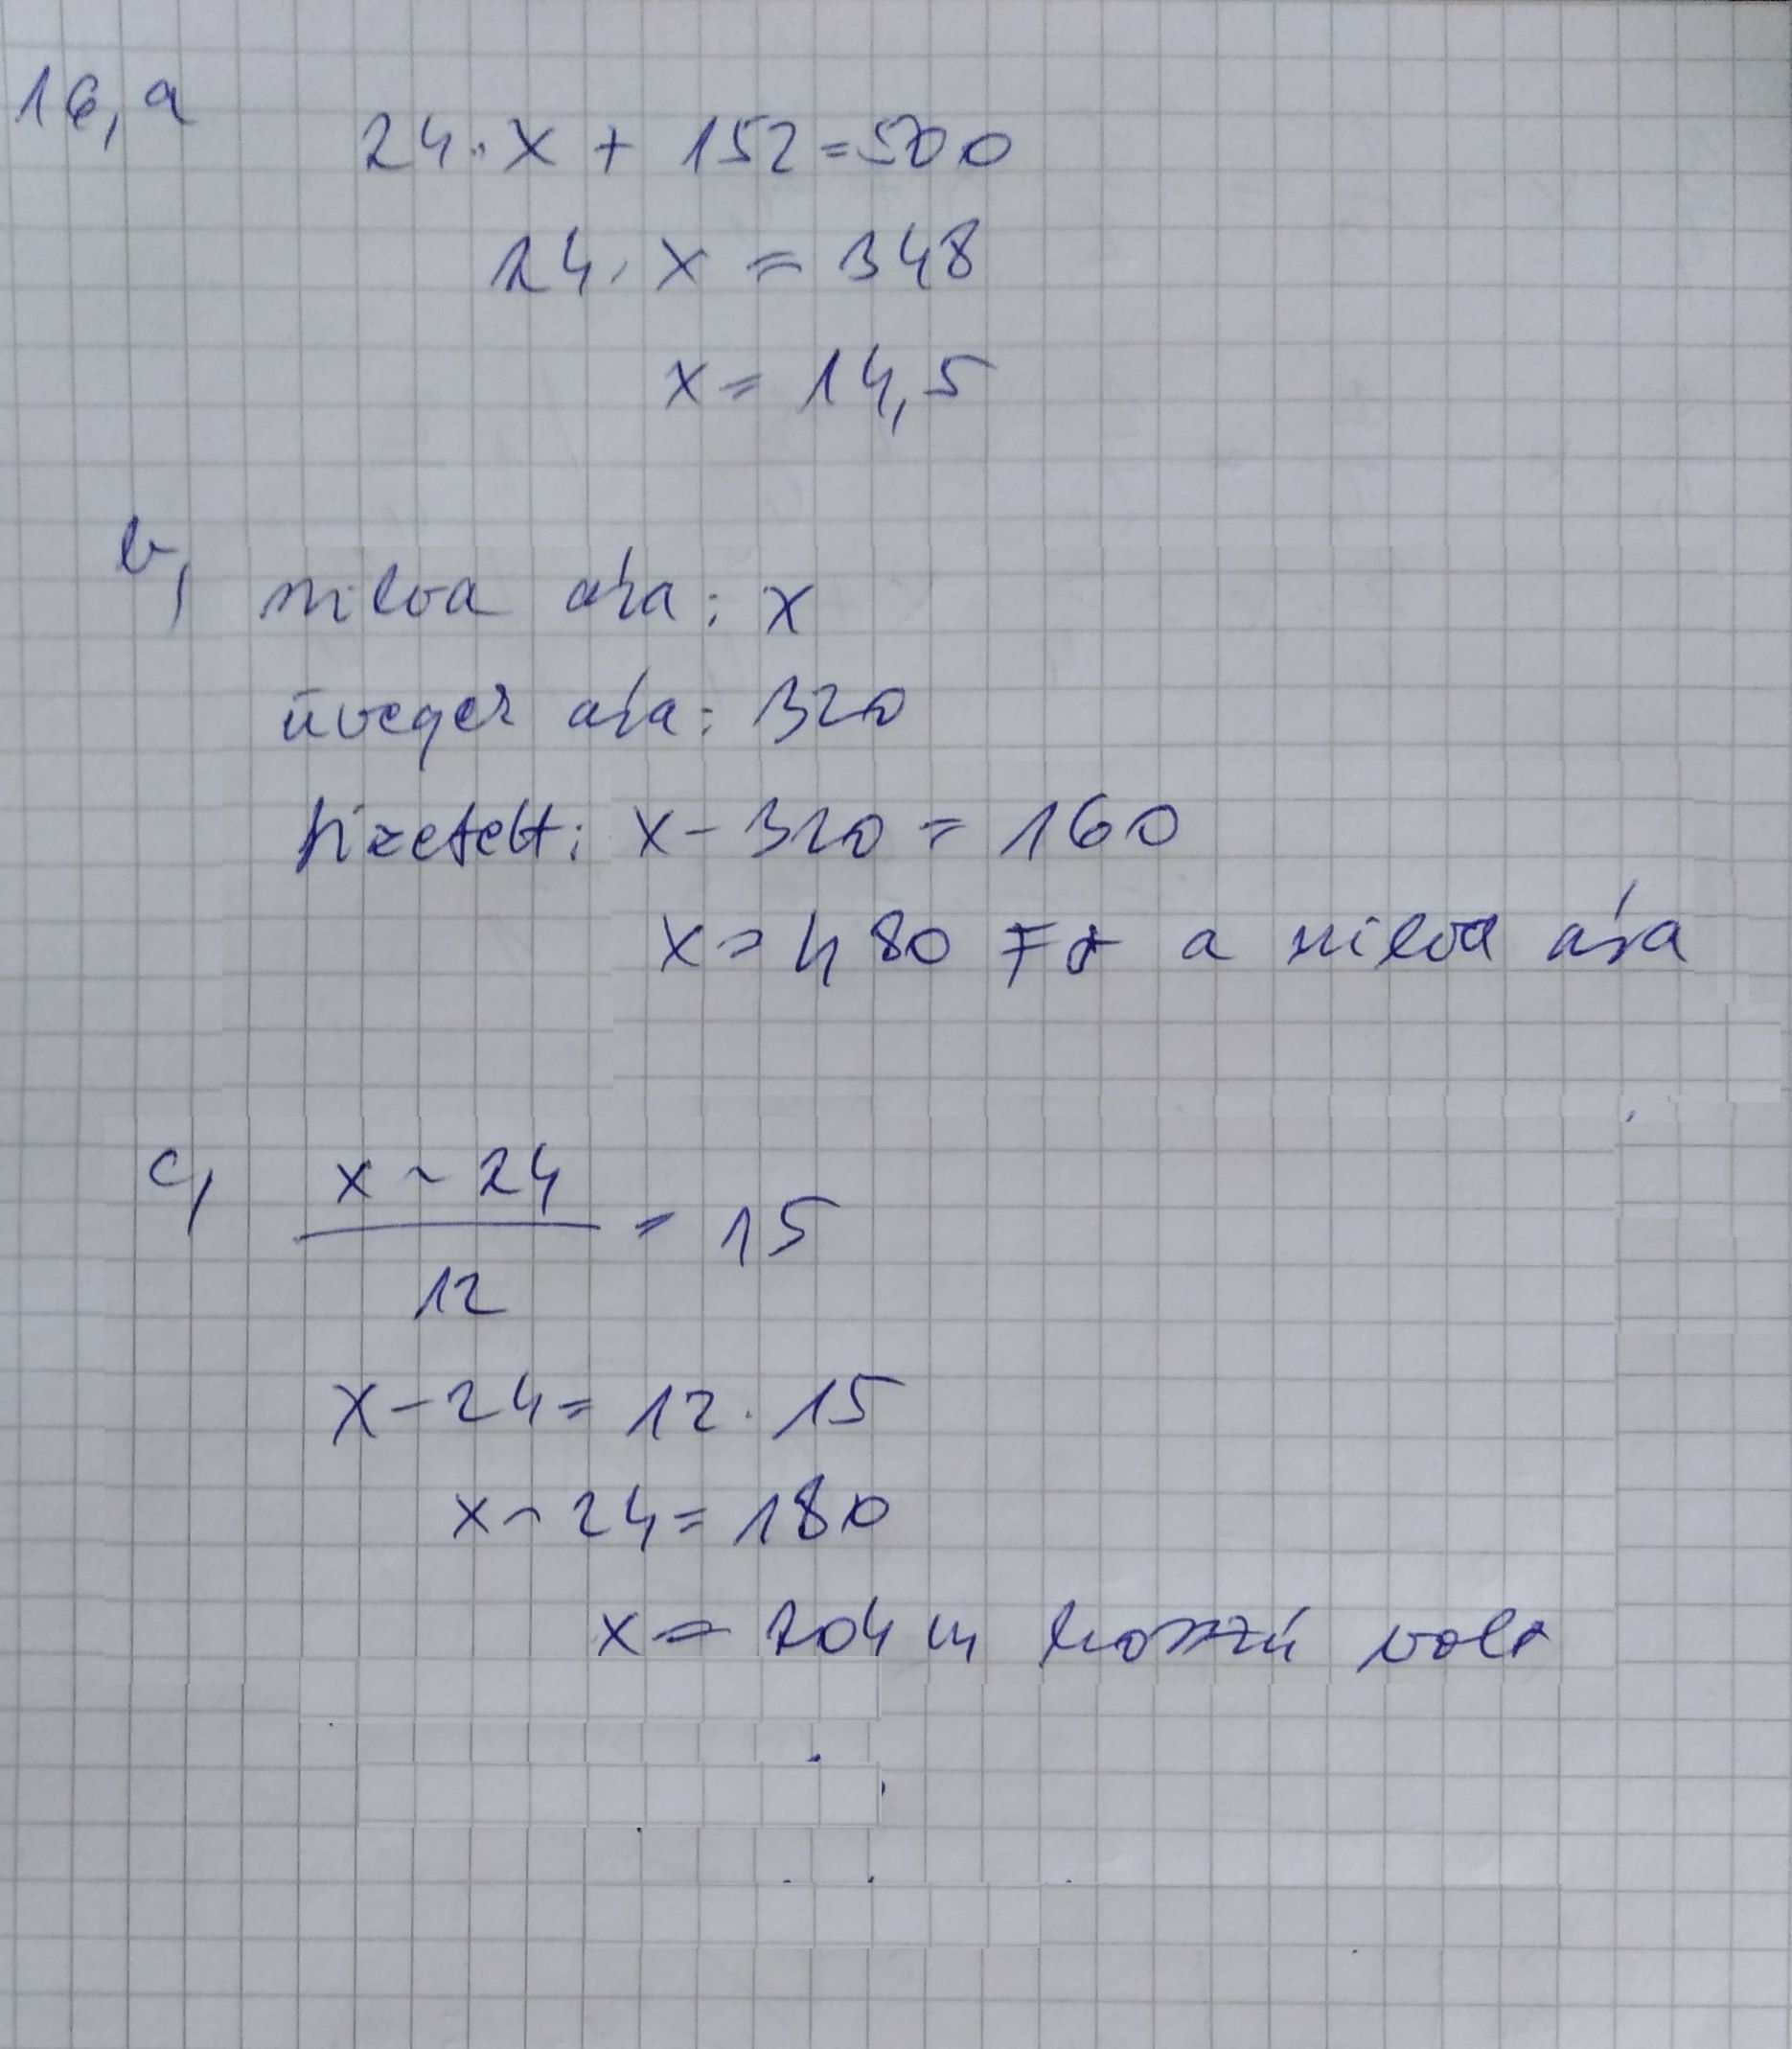 16, a
24 · x + 152 = 500
24 · x = 348
x = 14,5
b,
szilva ára: x
üvegek ára: 320
fizetett: x - 320 = 160
x = 480 Ft a szilva ára
c, x - 24 / 12 = 15
x - 24 = 12 · 15
x - 24 = 180
x = 204 m hosszú volt